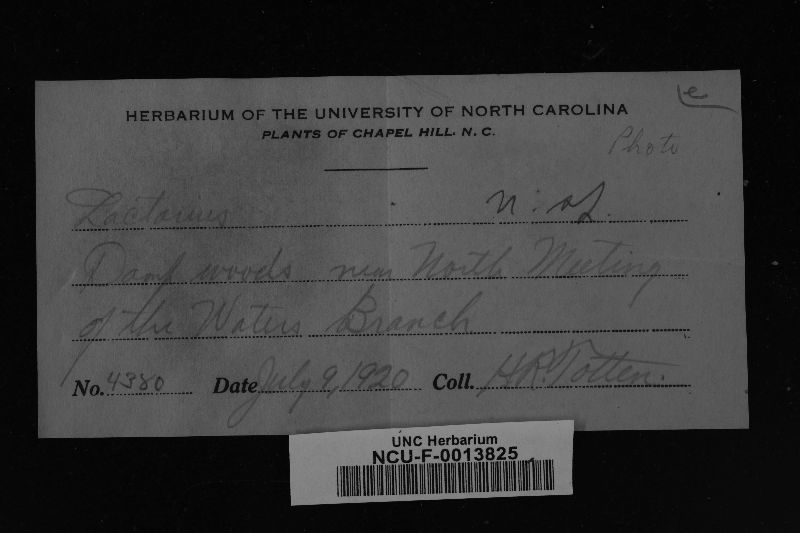 e
HERBARIUM OF THE UNIVERSITY OF NORTH CAROLINA
PLANTS OF CHAPEL HILL. N. C.
Photo
Lactarius n. sp.
Damp woods near North Meeting
of the Waters Branch
No. 4380 Date July 9, 1920 Coll. H.R. Totten.
UNC Herbarium
NCU-F-0013825